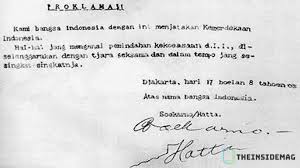 PROKLAMASI
Kami bangsa Indonesia dengan ini menjatakan Kemerdekaan
Indonesia.
Hal-hal jang mengenai pemindahan kekoeasaan d.l.l., di-
selenggarakan dengan tjara seksama dan dalam tempo jang se-
singkat-singkatnja.
Djakarta, hari 17 boelan 8 tahoen 05
Atas nama bangsa Indonesia.
Soekarno/Hatta.
Soekarno.
Hatta
THEINSIDEMAG